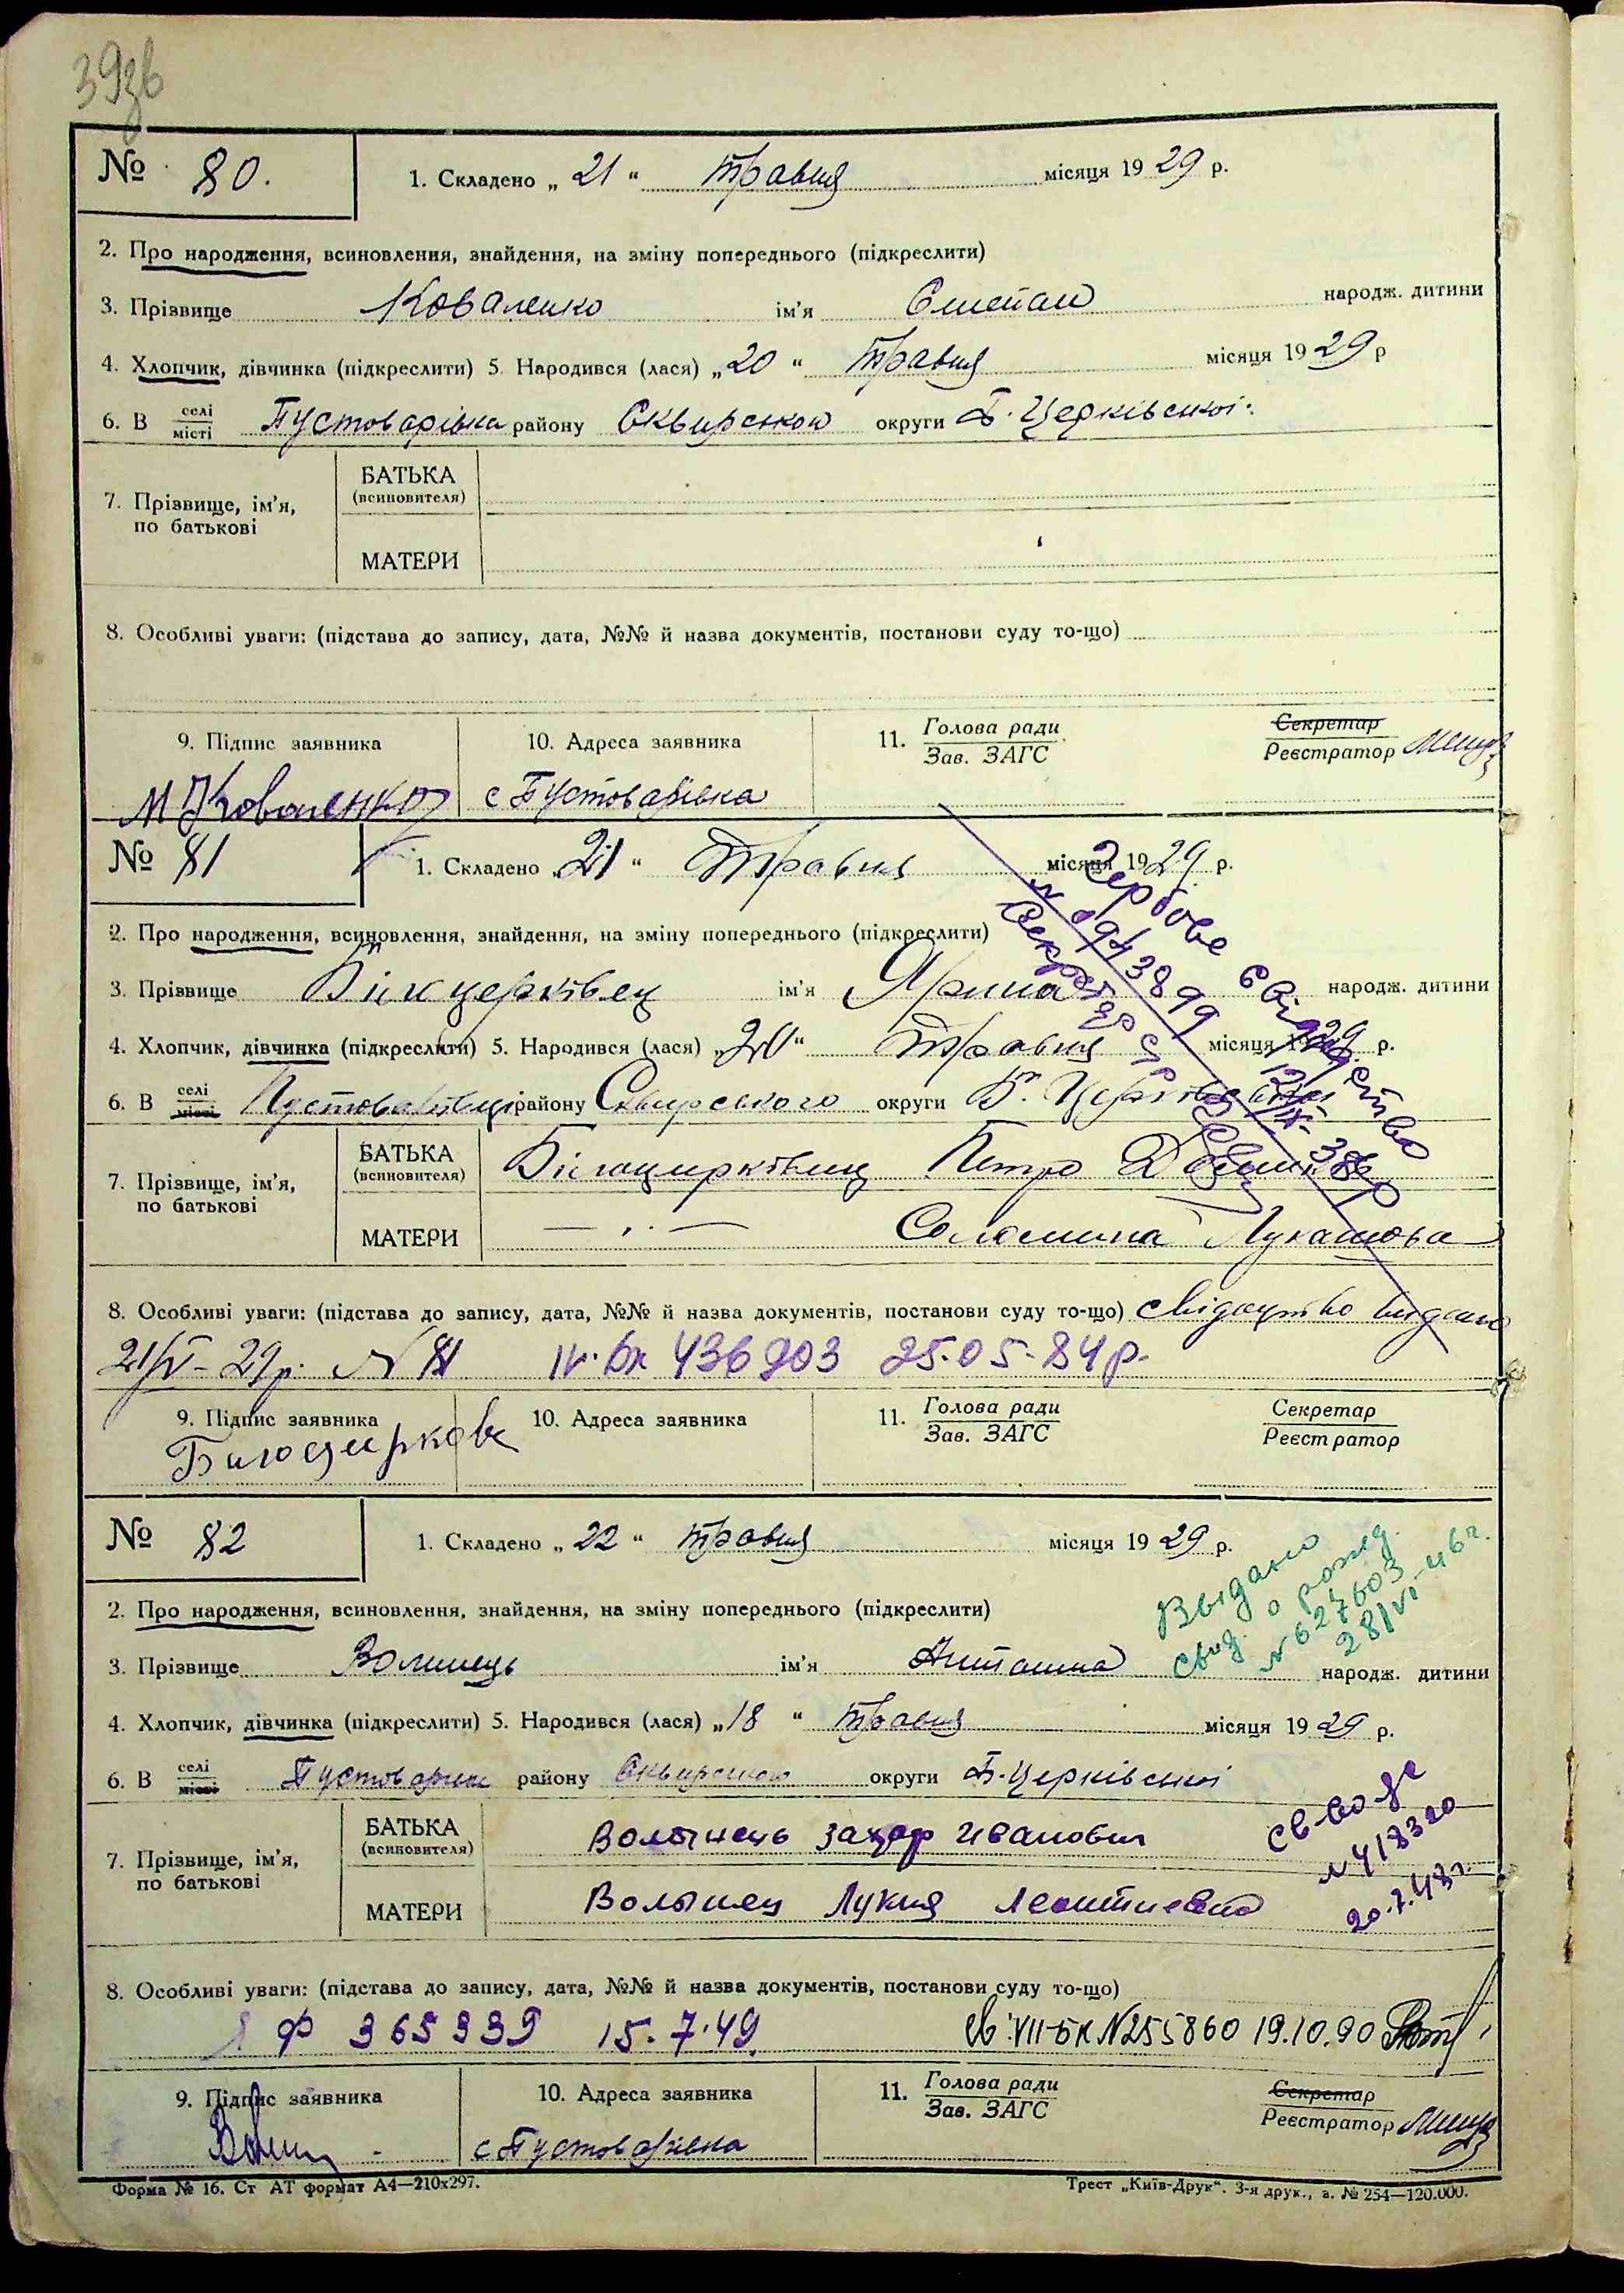 39зв
№ 80. 1. Складено „ 21 “ травня місяця 1929 р.
2. Про народження, всиновлення, знайдення, на зміну попереднього (підкреслити)
3. Прізвище Коваленко ім'я Степан народж. дитини
4. Хлопчик, дівчинка (підкреслити) 5. Народився (лася) „20 “ травня місяця 1929 р
6. В селі місті Пустоварівка району Сквирсьkого округи Б. Церківської
БАТЬКА
(всиновителя)
7. Прізвище, ім'я,
по батькові
МАТЕРИ
8. Особливі уваги: (підстава до запису, дата, №№ й назва документів, постанови суду то-що)
9. Підпис заявника 10. Адреса заявника 11. Голова ради Зав. ЗАГС Секретар Реєстратор
М Коваленко с Пустоварівка
№ 81 1. Складено „21 “ Травня місяця 1929 р.
2. Про народження, всиновлення, знайдення, на зміну попереднього (підкреслити)
3. Прізвище Білоцерківец ім'я Ярина народж. дитини
4. Хлопчик, дівчинка (підкреслити) 5. Народився (лася) „20“ Травня місяця 1929 р.
6. В селі місті Пустоварівці району Сквирського округи Б. Церківської
БАТЬКА
(всиновителя) Білоцирківец Петро
7. Прізвище, ім'я,
по батькові
МАТЕРИ — . . — Соломина Лукашова
Гербове свідоцтво
N 0943899
Секретар
8. Особливі уваги: (підстава до запису, дата, №№ й назва документів, постанови суду то-що) свідоцтво видано
21/V-29р. N 81 IV. бк 436903 25.05.84р.
9. Підпис заявника 10. Адреса заявника 11. Голова ради Зав. ЗАГС Секретар Реєстратор
Билоцеркове
№ 82 1. Складено „ 22 “ травня місяця 1929 р.
Выдано
свид. о рожд.
N 627603
28/VI-46 г.
2. Про народження, всиновлення, знайдення, на зміну попереднього (підкреслити)
3. Прізвище Волинець ім'я Антоніна народж. дитини
4. Хлопчик, дівчинка (підкреслити) 5. Народився (лася) „18 “ травня місяця 1929 р.
6. В селі місті району Сквирського округи Б.Церківської
БАТЬКА
(всиновителя) Волынець Захар Иванович
7. Прізвище, ім'я,
по батькові
МАТЕРИ Волынец Лукия Леонтиевна
св-во
N 418320
20.7.48г.
8. Особливі уваги: (підстава до запису, дата, №№ й назва документів, постанови суду то-що)
Ф 365939 15.7.49. св. VII-БК N255860 19.10.90
9. Підпис заявника 10. Адреса заявника 11. Голова ради Зав. ЗАГС Секретар Реєстратор
с Пустоварівка
Форма № 16. Ст АТ формат А4—210x297. Трест „Київ-Друк“. 3-я друк., з. № 254—120.000.